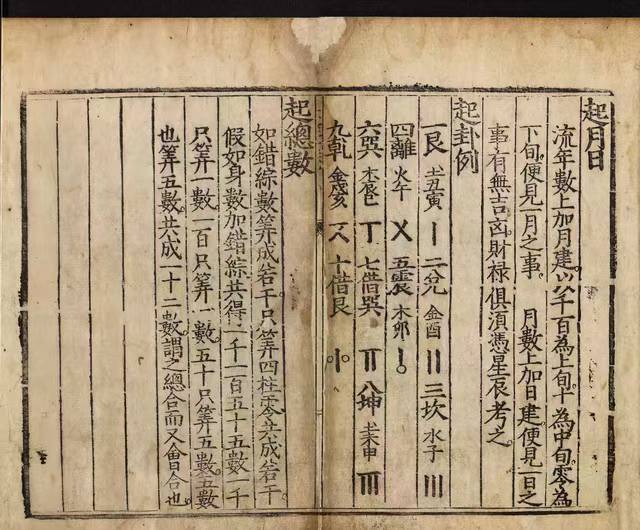 起月日
流年數上加月建以千百為上旬十為中旬零為
下旬。便見一月之事。 月數上加日建。便見一日之
事。有無吉凶財禄俱須憑星辰考之
起卦例
一艮 土丑寅 〡 二兌 金酉 〢 三坎 水子 〣
四離 火午 〤 五震 木卯 〥
六巽 木辰巳 〦 七借巽 〧 八坤 土未申 〨
九乾 金戌亥 〩 十借艮
起總數
如錯綜數筭成若干只筭四柱零共成若干
假如身數加錯綜共得一千一百五十五數一千
只筭一數一百只筭一數。五十只筭五數。五數
也筭五數。共成一十二數。謂之總合而又會合也。